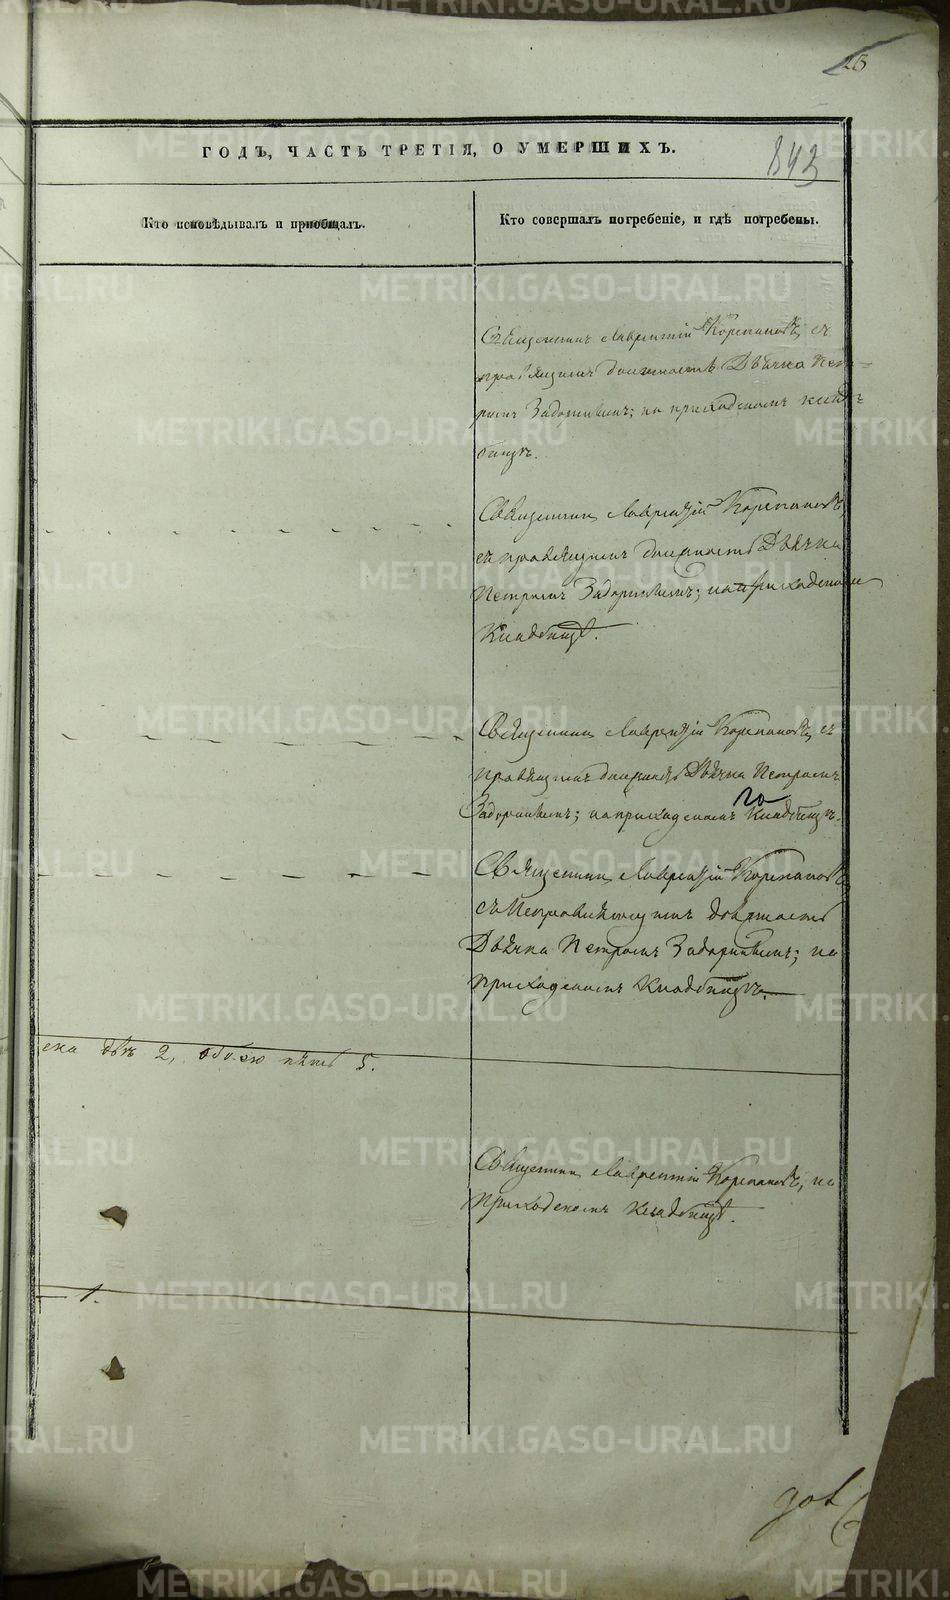 25
ГОДЪ, ЧАСТЬ ТРЕТІЯ, О УМЕРШИХЪ.
843
Кто исповѣдывалъ и пріобщалъ.
Кто совершалъ погребеніе, и гдѣ погребены.
Священникъ Лаврентій Корепановъ, съ
правящимъ должность Дьячка Пет-
ромъ Задоринымъ; на приходскомъ клад-
бищѣ.
Священникъ Лаврентій Корепановъ,
съ правящимъ должность Дьячка
Петромъ Задоринымъ; на приходскомъ
Кладбищѣ.
Священникъ Лаврентій Корепановъ, съ
правящимъ должность Дьячка Петромъ
Задоринымъ; на приходскомъ Кладбищѣ.
Священникъ Лаврентій Корепановъ,
съ должность
Дьячка Петромъ Задоринымъ; на
приходскомъ Кладбищѣ.
ска двѣ 2, обоего пять 5.
Священникъ Лаврентій Корепановъ, на
приходскомъ кладбищѣ.
— 1.
METRIKI.GASO-URAL.RU